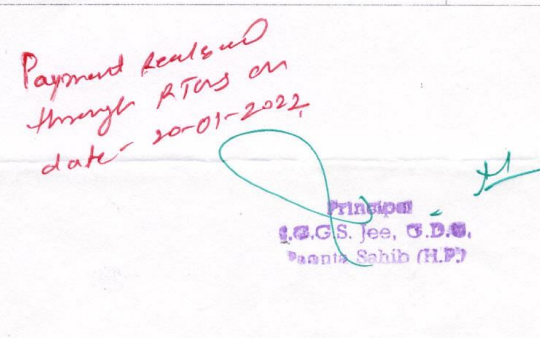 Payment realised
through RTGS on
date- 20-01-2022
Principal
S.G.G.S. Jee, G.D.C.
Paonta Sahib (H.P.)